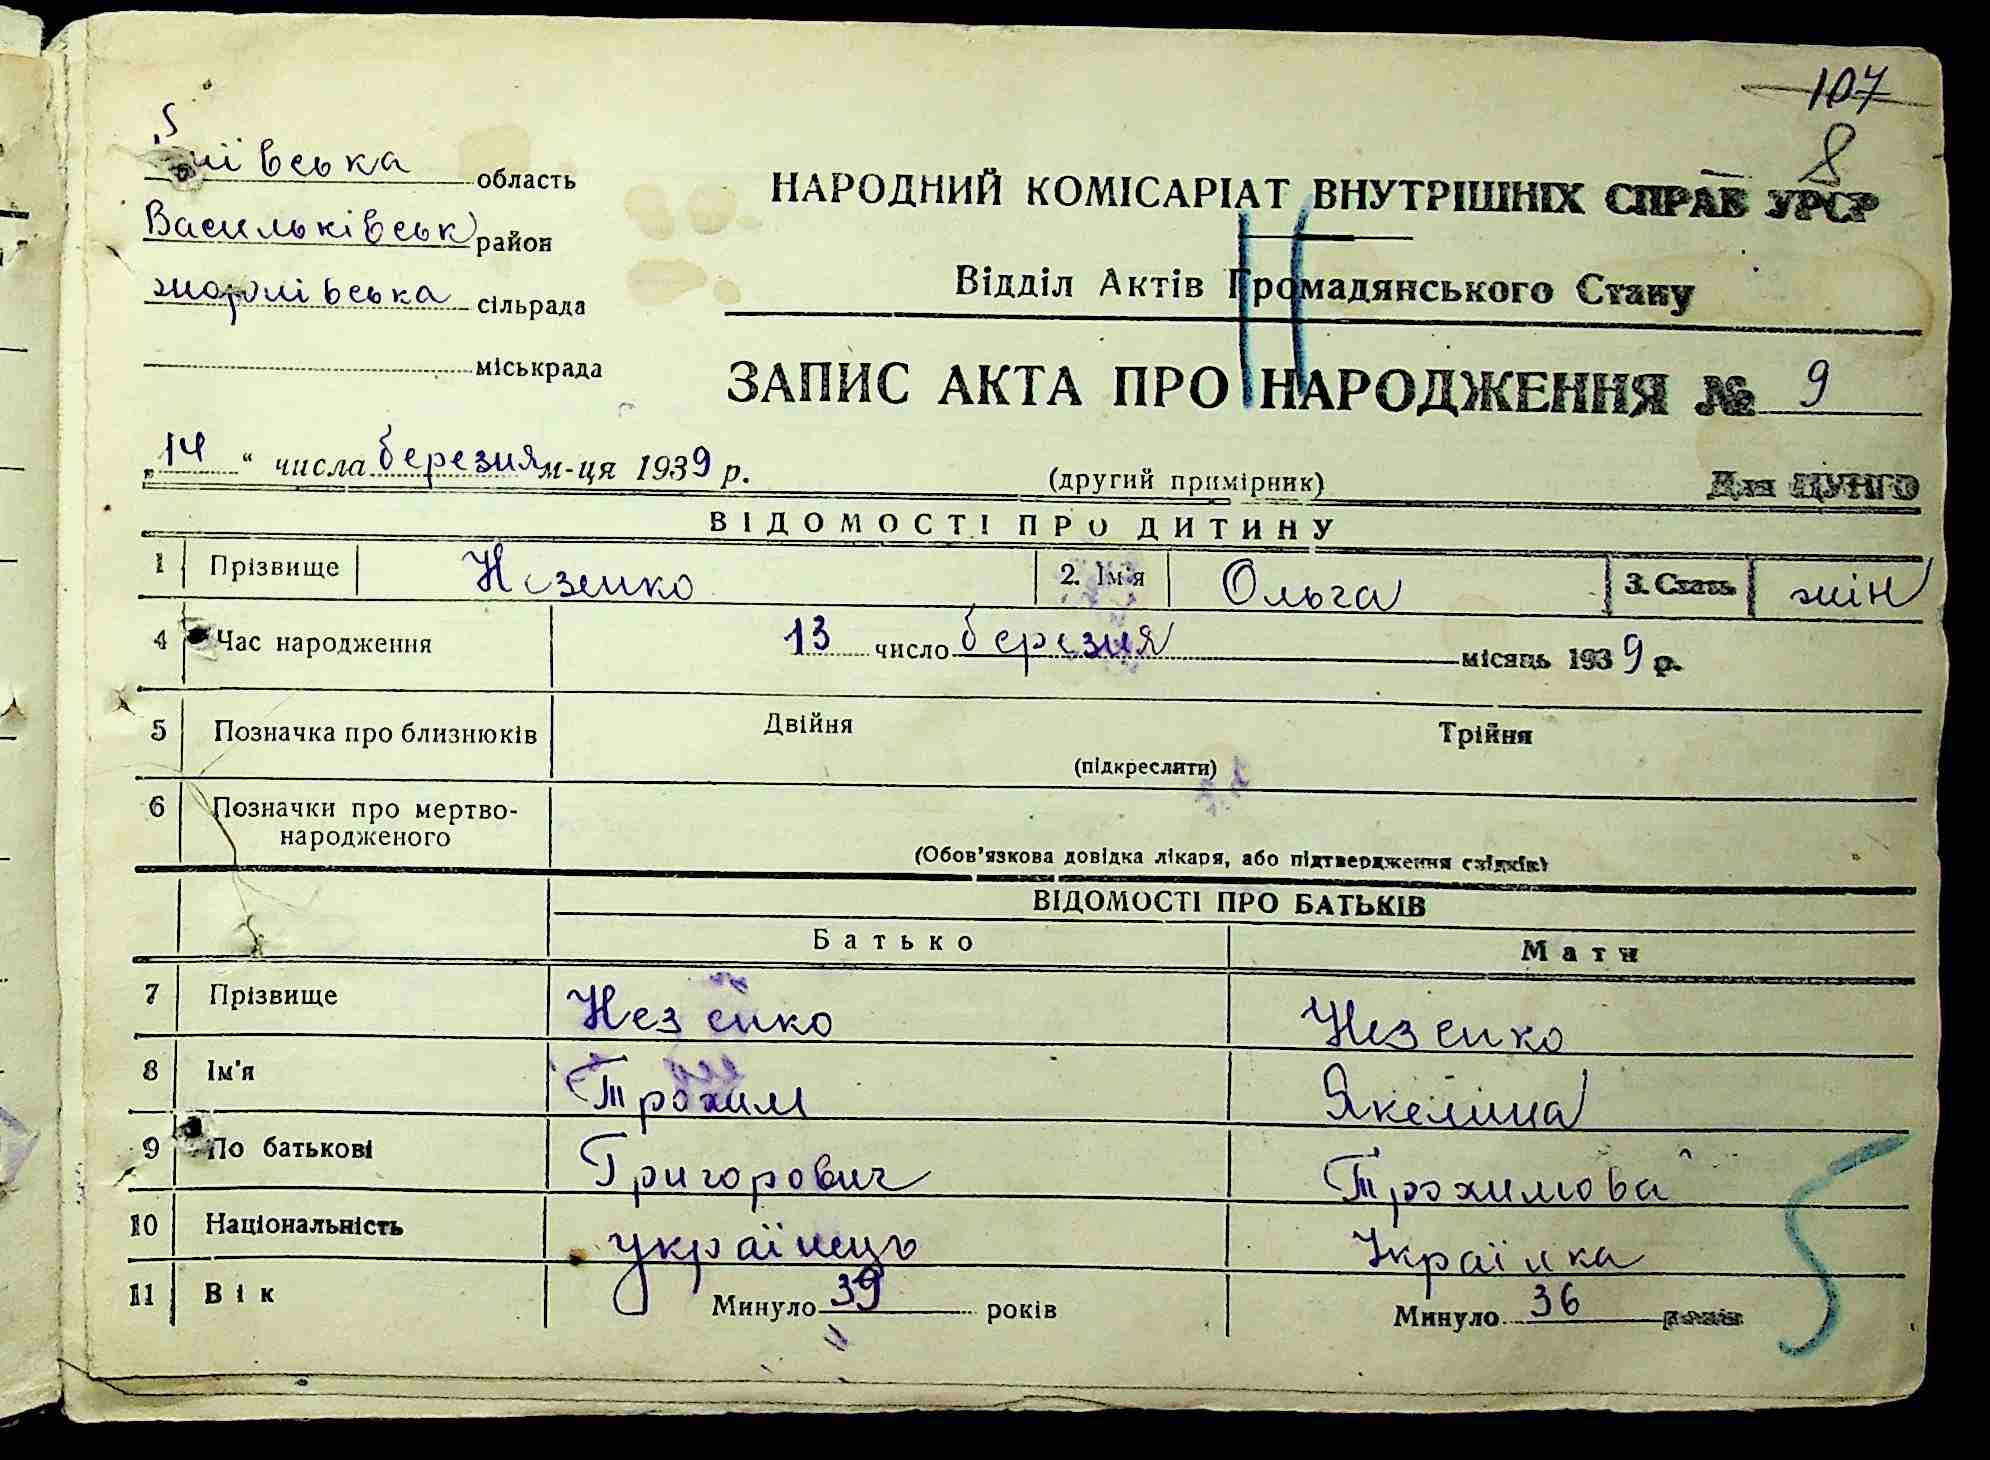 107
8
иївська область
Васильківськ район
жорнівська сільрада
міськрада
НАРОДНИЙ КОМІСАРІАТ ВНУТРІШНІХ СПРАВ УРСР
Відділ Актів Громадянського Стану
ЗАПИС АКТА ПРО НАРОДЖЕННЯ № 9
„14“ числа березня м-ця 1939 р.
(другий примірник)
Для ЦУНГО
ВІДОМОСТІ ПРО ДИТИНУ
1 Прізвище Незенко 2. Ім'я Ольга 3. Стать жін
4 Час народження 13 число березня місяць 1939 р.
5 Позначка про близнюків Двійня Трійня
(підкреслити)
6 Позначки про мертво-
народженого
(Обов'язкова довідка лікаря, або підтвердження свідків)
ВІДОМОСТІ ПРО БАТЬКІВ
Батько Мати
7 Прізвище Незенко Незенко
8 Ім'я Трохим Якелина
9 По батькові Григорович Трохимова
10 Національність українець Українка
11 Вік Минуло 39 років Минуло 36 років